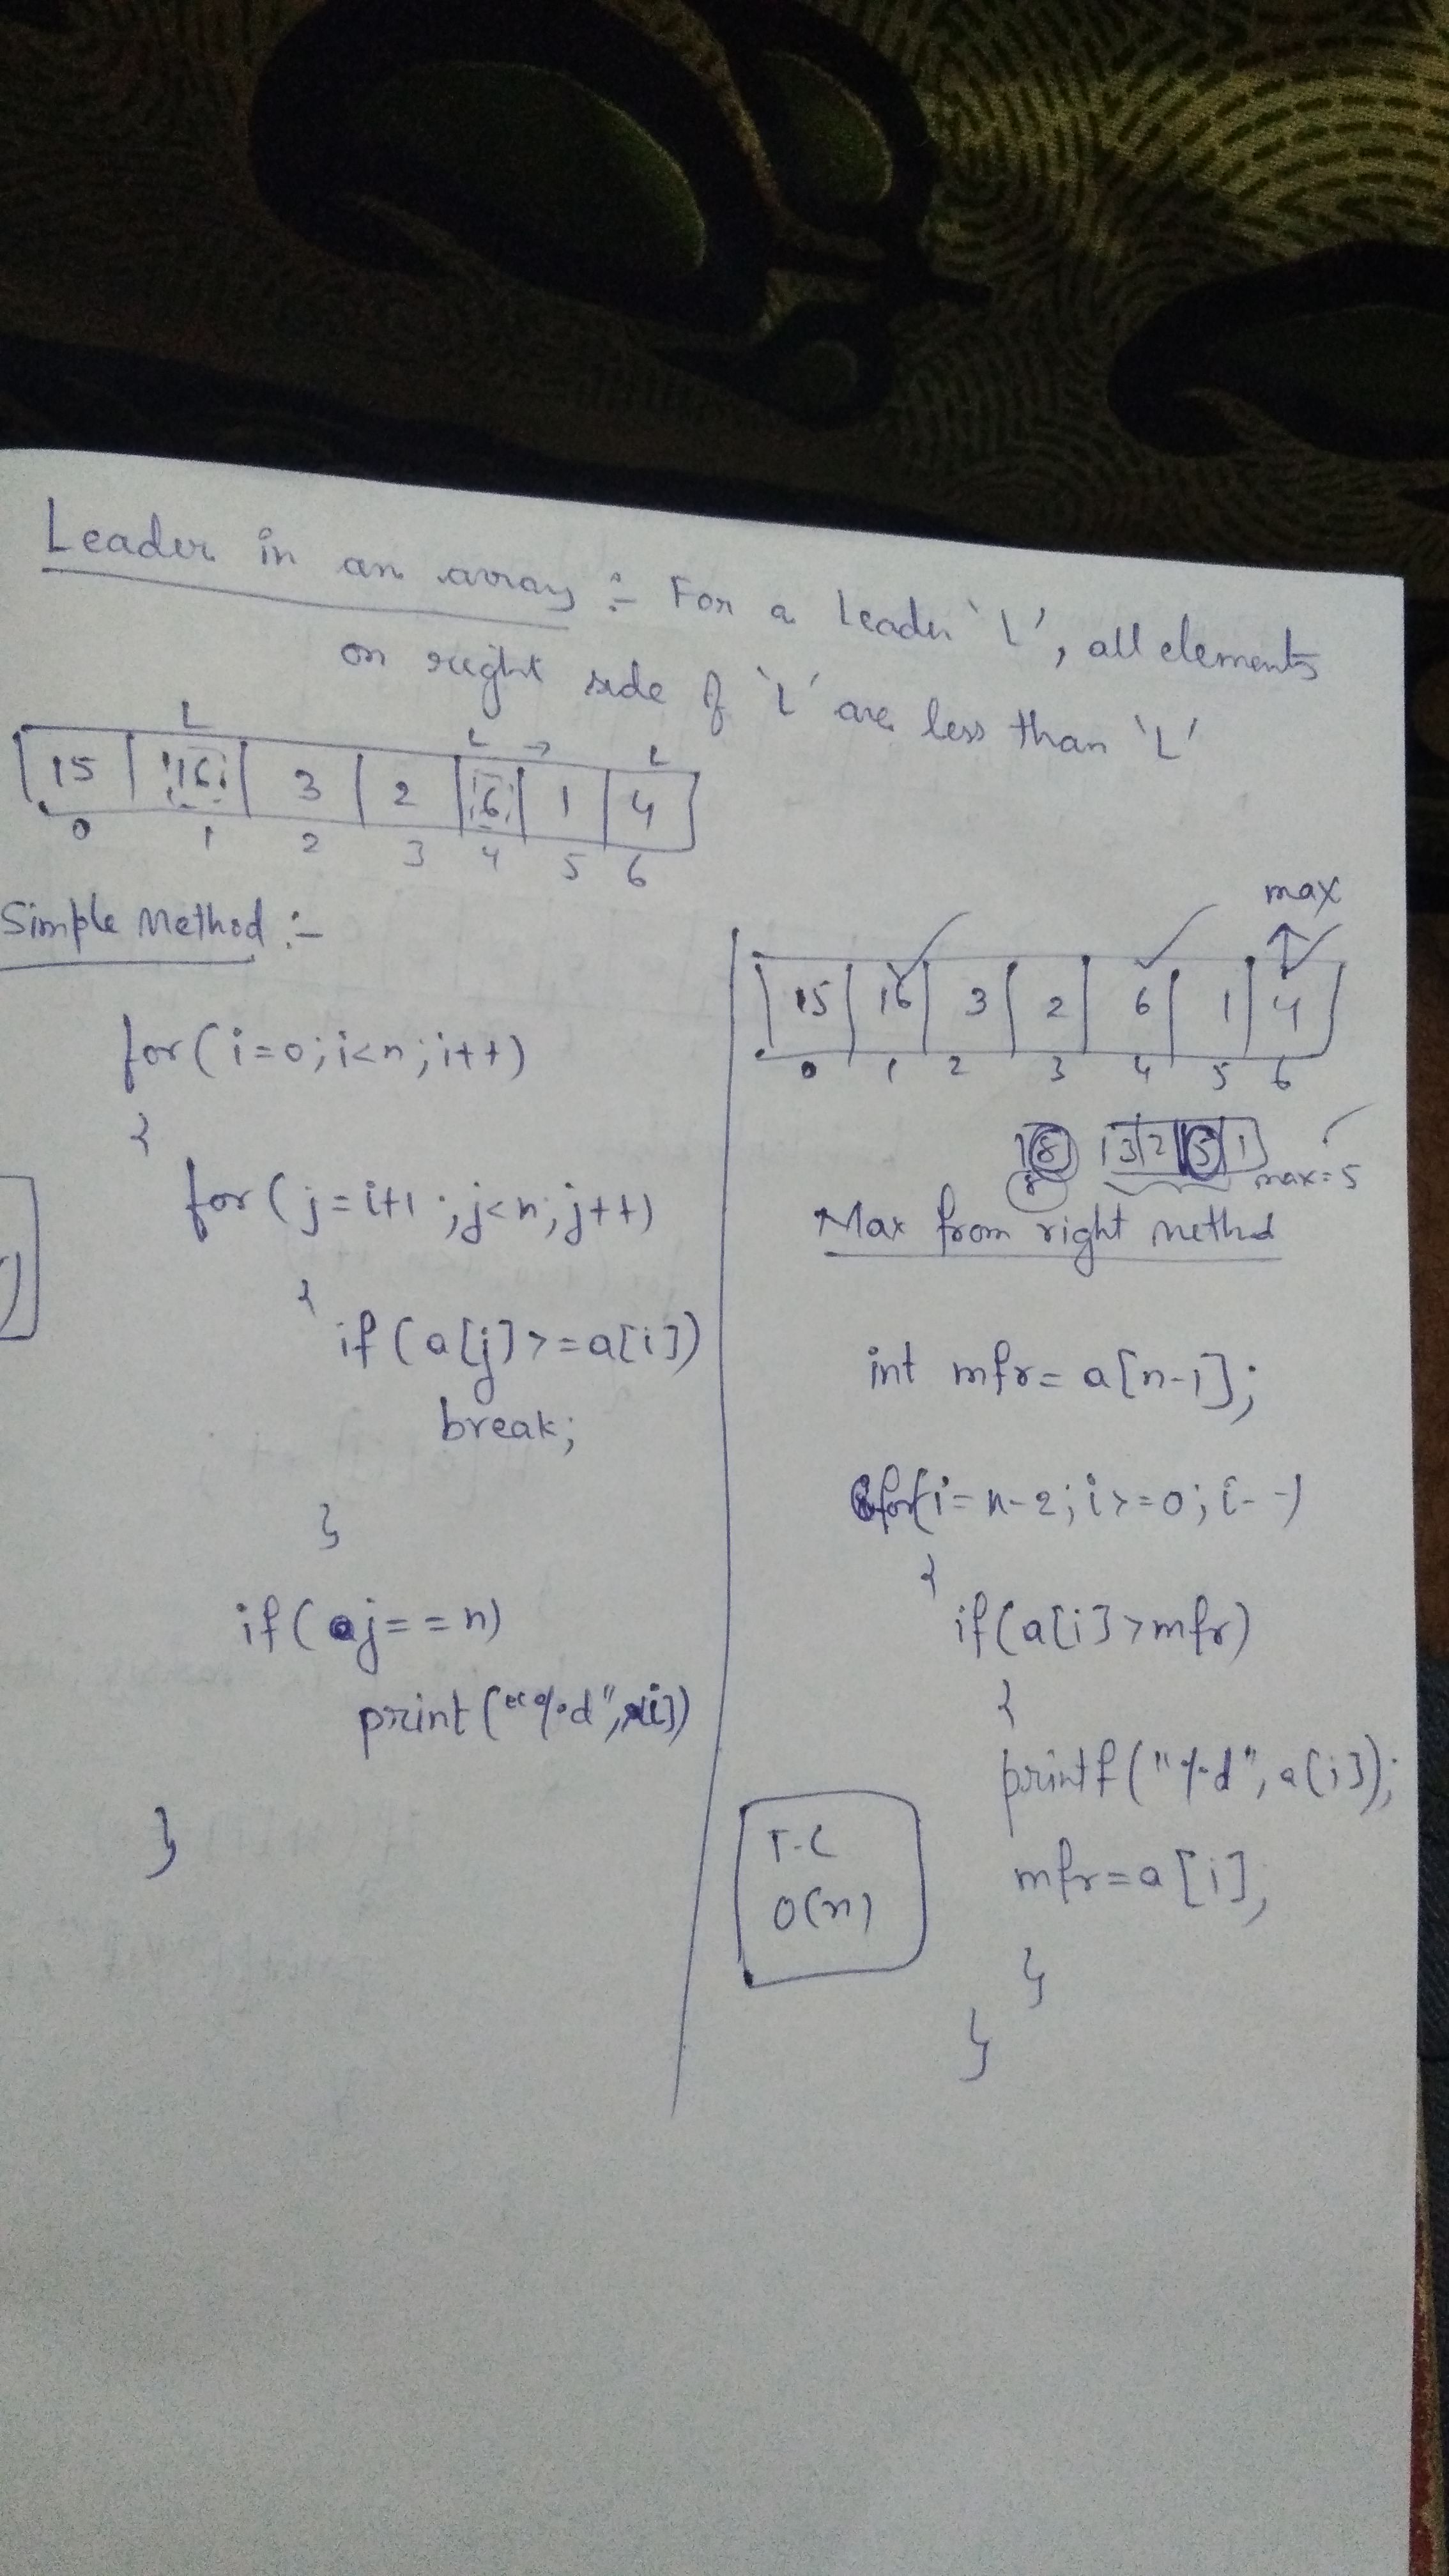 Leader in an array :- For a Leader 'L', all elements
on right side of 'L' are less than 'L'
L L → L
15 16 3 2 6 1 4
0 1 2 3 4 5 6
Simple Method :-
for(i=0;i<n;i++)
{
for(j=i+1;j<n;j++)
{
if(a[j]>=a[i])
break;
}
if(j==n)
print("%d",
}
max
15 16 3 2 6 1 4
0 1 2 3 4 5 6
8 3 2 5 1
max=5
Max from right method
int mfr=a[n-1];
for(i=n-2;i>=0;i--)
{
if(a[i]>mfr)
{
printf("%d",a[i]);
mfr=a[i],
}
}
T.C
O(n)